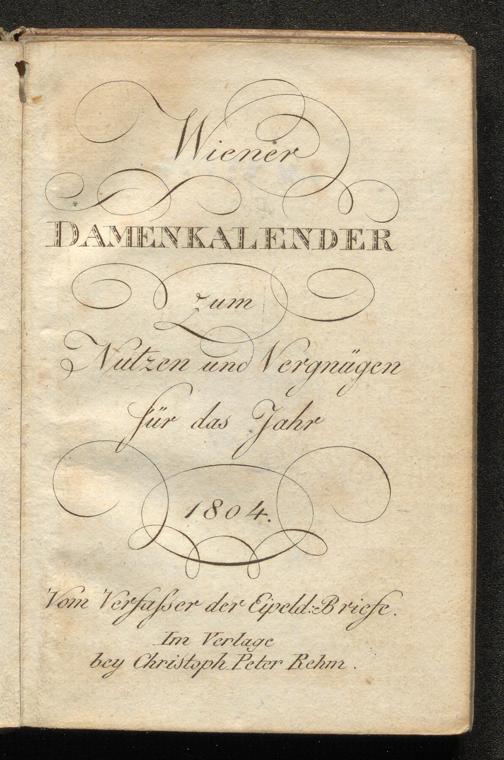 Wiener
DAMENKALENDER
zum
Nutzen und Vergnügen
für das Jahr
1804.
Vom Verfasser der Eipeld:Briefe.
Im Verlage
bey Christoph Peter Rehm.